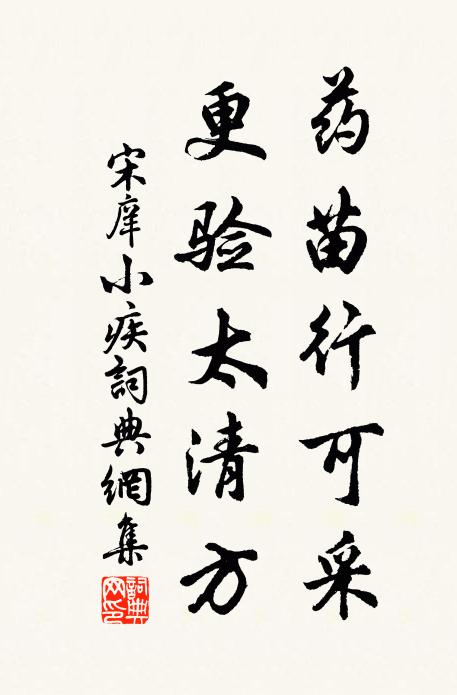 药苗行可采
更验太清方
宋庠小疾詞典網集
詞典网印